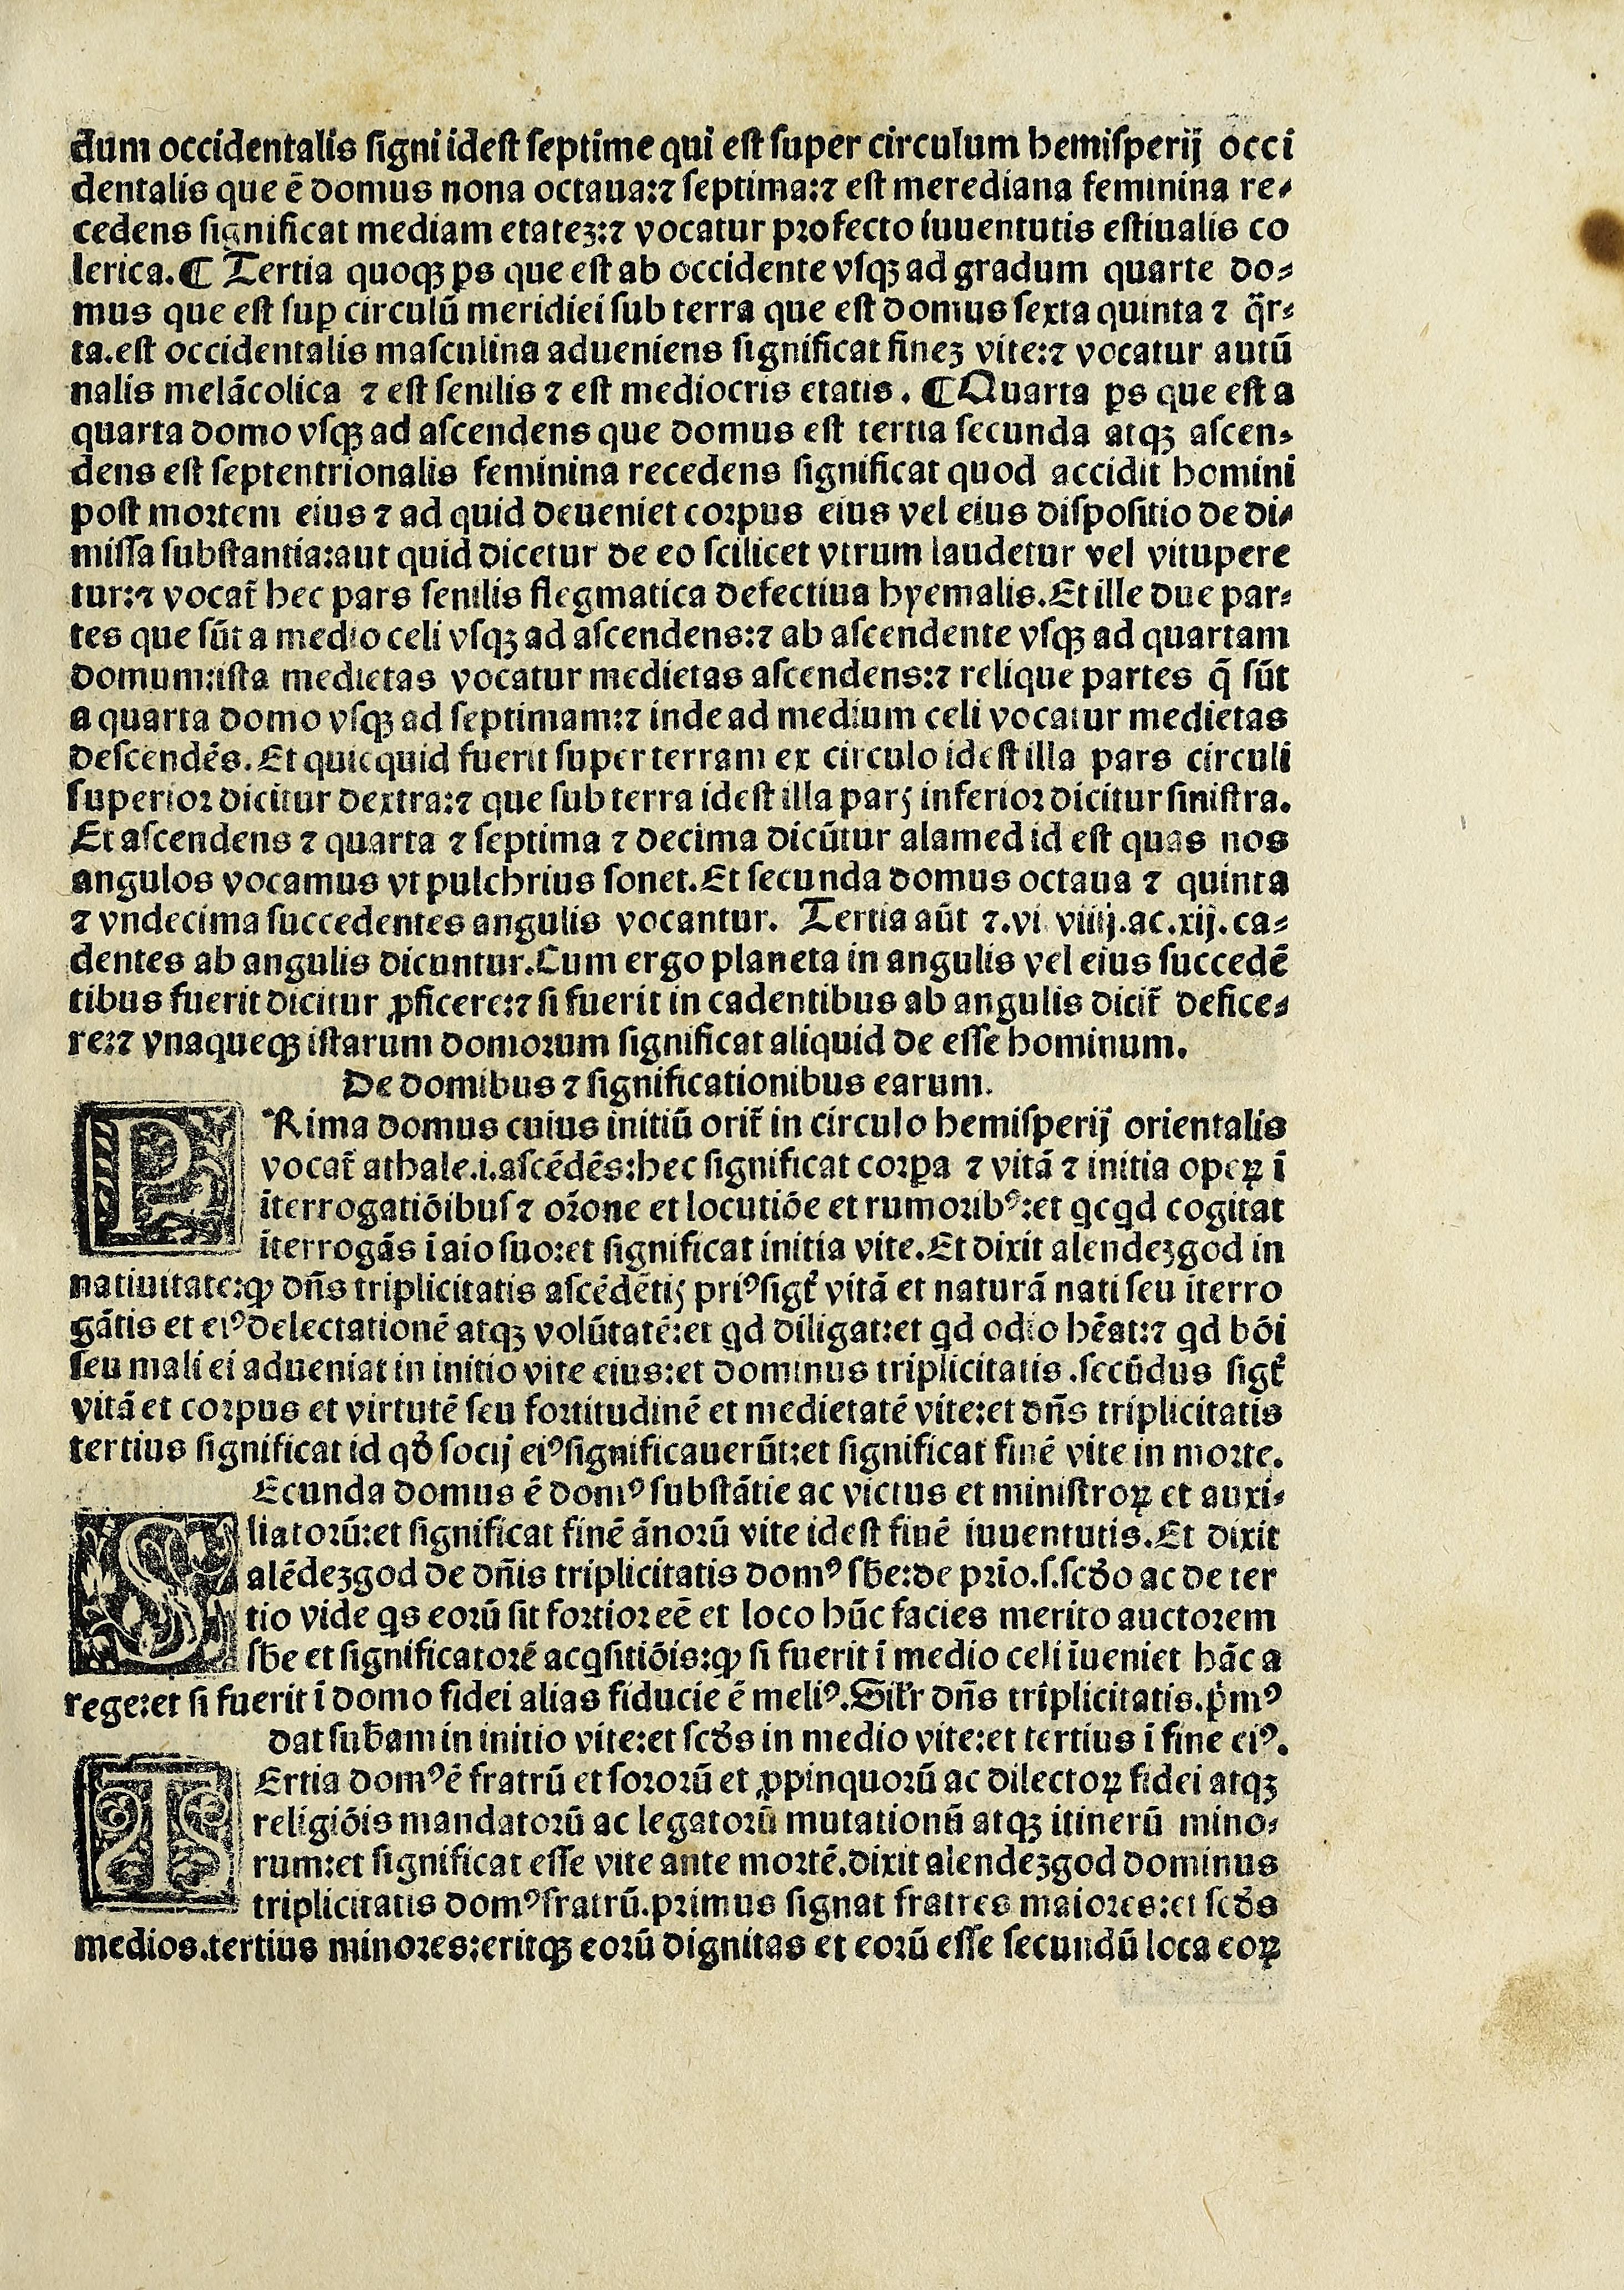 dum occidentalis ſigni idest ſeptime qui eſt ſuper circulum hemiſperij occi
dentalis que ē domus nona octaua:⁊ ſeptima:⁊ est merediana feminina re⸗
cedens ſignificat mediam etateꝫ:⁊ vocatur profecto iuuentutis eſtiualis co
lerica.¶ Tertia quoqꝫ ꝑs que eſt ab occidente vſqꝫ ad gradum quarte do⸗
mus que eſt ſuꝑ circulū meridiei ſub terra que eſt domus ſexta quinta ⁊ q̄r⸗
ta.eſt occidentalis maſculina adueniens ſignificat fineꝫ vite:⁊ vocatur autū
nalis melācolica ⁊ eſt ſenilis ⁊ eſt mediocris etatis. ¶Quarta ꝑs que eſt a
quarta domo vſqꝫ ad aſcendens que domus eſt tertia ſecunda atqꝫ aſcen⸗
dens eſt ſeptentrionalis feminina recedens ſignificat quod accidit homini
poſt mortem eius ⁊ ad quid deueniet corpus eius vel eius diſpoſitio de di⸗
miſſa ſubſtantia:aut quid dicetur de eo ſcilicet vtrum laudetur vel vitupere
tur:⁊ vocat̄ hec pars ſenilis flegmatica defectiua hyemalis.Et ille due par⸗
tes que ſūt a medio celi vſqꝫ ad aſcendens:⁊ ab aſcendente vſqꝫ ad quartam
domum:iſta medietas vocatur medietas aſcendens:⁊ relique partes q̄ ſūt
a quarta domo vſqꝫ ad ſeptimam:⁊ inde ad medium celi vocatur medietas
deſcendēs.Et quicquid fuerit ſuper terram ex circulo idest illa pars circuli
ſuperior dicitur dextra:⁊ que ſub terra idest illa parſ inferior dicitur ſiniſtra.
Et aſcendens ⁊ quarta ⁊ ſeptima ⁊ decima dicūtur alamed id eſt quas nos
angulos vocamus vt pulchrius ſonet.Et ſecunda domus octaua ⁊ quinta
⁊ vndecima ſuccedentes angulis vocantur. Tertia aūt ⁊.vi viiij.ac.xij.ca⸗
dentes ab angulis dicuntur.Cum ergo planeta in angulis vel eius ſuccedē
tibus fuerit dicitur ꝓficere:⁊ ſi fuerit in cadentibus ab angulis dicit̄ defice⸗
re:⁊ vnaqueqꝫ iſtarum domorum ſignificat aliquid de eſſe hominum.
De domibus ⁊ ſignificationibus earum.
PRima domus cuius initiū orit̄ in circulo hemiſperij orientalis
vocat̄ athale.i.aſcēdēs:hec ſignificat corꝑa ⁊ vitā ⁊ initia opeꝝ ī
īterrogatiōibuſ ⁊ or̄one et locutiōe et rumoribꝰ:et qcqd cogitat
īterrogās ī aio ſuo:et ſignificat initia vite.Et dixit alendeꝫgod in
natiuitate:ꝙ dn̄s triplicitatis aſcēdētiſ priꝰ ſigt̄ vitā et naturā nati ſeu īterro
gātis et eiꝰ delectationē atqꝫ volūtatē:et qd diligat:et qd odio hēat:⁊ qd bōi
ſeu mali ei adueniat in initio vite eius:et dominus triplicitatis .ſecūdus ſigt̄
vitā et corpus et virtutē ſeu fortitudinē et medietatē vite:et dn̄s triplicitatis
tertius ſignificat id qd̄ ſocij eiꝰ ſignificauerūt:et ſignificat finē vite in morte.
SEcunda domus ē domꝰ ſubſtātie ac victus et miniſtroꝝ et auxi⸗
liatorū:et ſignificat finē ānorū vite idest finē iuuentutis.Et dixit
alēdeꝫgod de dn̄is triplicitatis domꝰ ſb̄e:de prīo.ſ.ſcd̄o ac de ter
tio vide qs eorū ſit fortior eē et loco hūc facies merito auctorem
ſb̄e et ſignificatorē acqſitiōis:ꝙ ſi fuerit ī medio celi īueniet hāc a
rege:et ſi fuerit ī domo fidei alias fiducie ē meliꝰ.Sil̄r dn̄s triplicitatis.p̄mꝰ
dat ſub̄am in initio vite:et ſcd̄s in medio vite:et tertius ī fine eiꝰ.
TErtia domꝰ ē fratrū et ſororū et ꝓpinquorū ac dilectoꝝ fidei atqꝫ
religiōis mandatorū ac legatorū mutationū atqꝫ itinerū mino⸗
rum:et ſignificat eſſe vite ante mortē.dixit alendeꝫgod dominus
triplicitatis domꝰ fratrū.primus ſignat fratres maiores:et ſcd̄s
medios.tertius minores:eritqꝫ eorū dignitas et eorū eſſe ſecundū loca eoꝝ